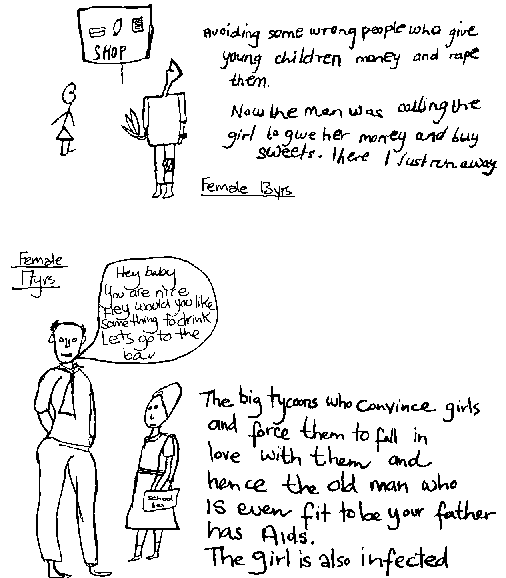 SHOP
Avoiding some wrong people who give
young children money and rape
them.
Now the man was calling the
girl to give her money and buy
sweets. There I just run away
Female 13yrs
Female
17yrs
Hey baby
You are nice
Hey would you like
something to drink
Lets go to the
bar
The big tycoons who convince girls
and force them to fall in
love with them and
hence the old man who
is even fit to be your father
has Aids.
The girl is also infected
school